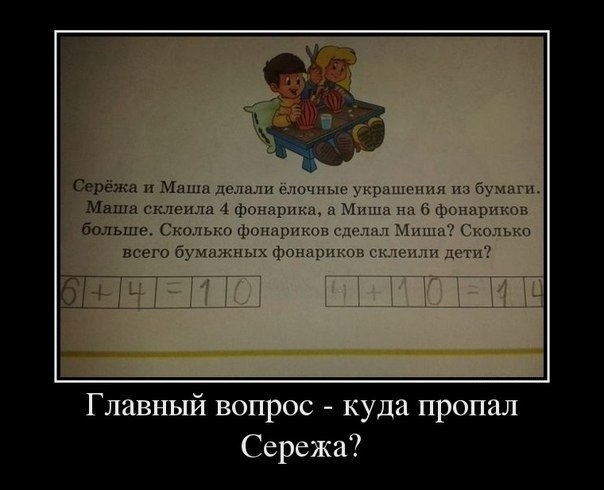 Серёжа и Маша делали ёлочные украшения из бумаги.
Маша склеила 4 фонарика, а Миша на 6 фонариков
больше. Сколько фонариков сделал Миша? Сколько
всего бумажных фонариков склеили дети?
6+4=10 4+10=14
Главный вопрос - куда пропал
Сережа?